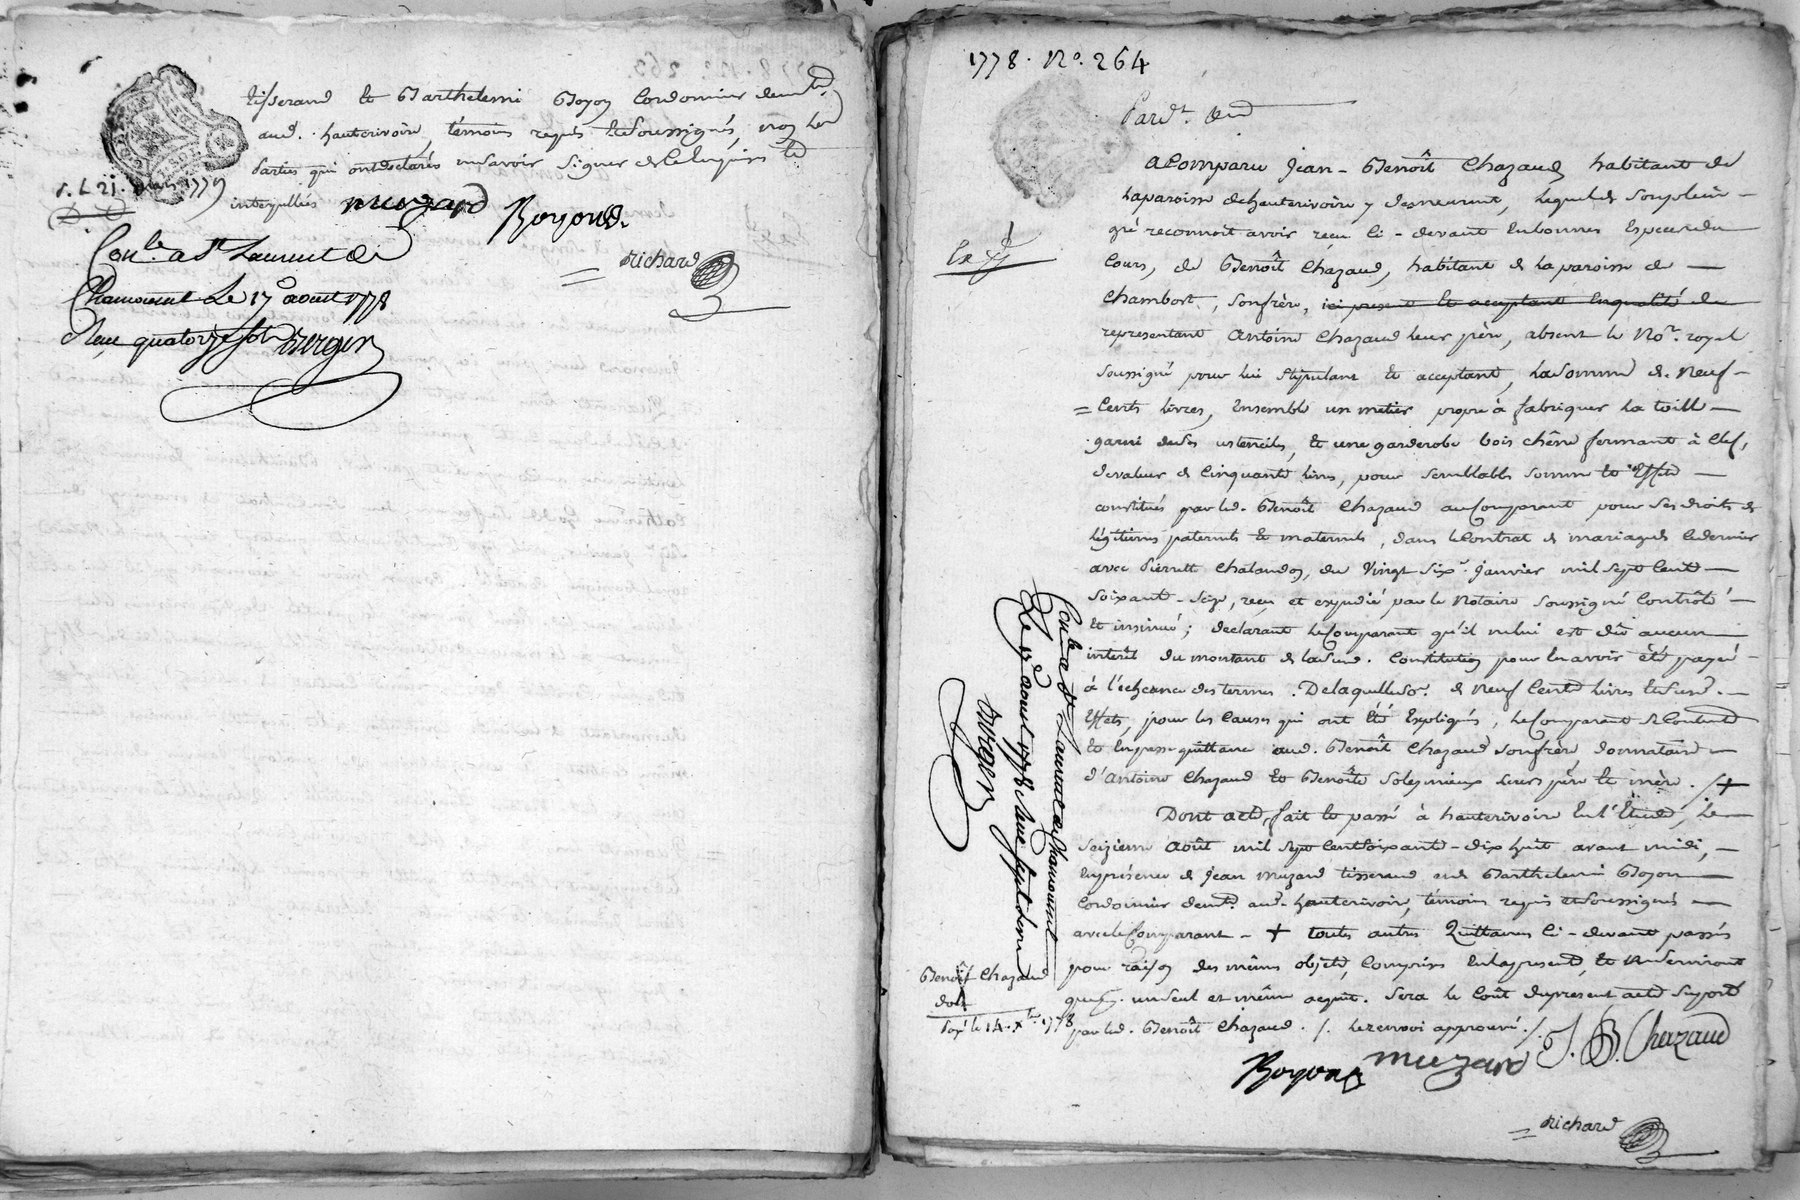 tisserand et Barthelemi Boyon Cordonnier demt.
aud. hauterivoire, témoins requis et soussignés, non les
parties qui ont déclarés ne savoir signer de ce enquises et
interpellées
muzard Boyond.
richard
21. mars 1779
Conlé a St Laurent de
Chamousset Le 17 aout 1778
Reçu quatorze sols berger
1778. No. 264
Pardt. etc
a Comparu Jean-Benoît Chazaud habitant de
la paroisse d'hauterivoire y demeurant, lequel de son plein-
gré reconnoit avoir reçu ci-devant en bonnes Especes du
Cours, de Benoît Chazaud, habitant de la paroisse de
Chambost, son frère, ici present et acceptant en qualité de
representant Antoine Chazaud leur père, absent le Nore. royal
soussigné pour lui stipulant et acceptant, la somme de Neuf-
Cents livres, Ensemble un métier propre à fabriquer la toill
garni de ses ustenciles, et une garderobe bois chêne fermant à clef,
de valeur de Cinquante livres, pour semblable somme et Effets
constitués par led. Benoît Chazaud au Comparant pour ses droits de
légitimes paternels et maternels, dans le Contrat de mariage de ce dernier
avec Pierrette Chalandon, du Vingt Six Janvier mil sept Cent
Soixante-Seize, reçu et expédié par le Notaire soussigné Contrôlé
et insinué; declarant le Comparant qu'il ne lui est dû aucun
intérêt du montant de lad. Constitution pour en avoir été payé
à l'echeance des termes. De laquelle so. de Neuf Cents livres et susd.
Effets, pour les Causes qui ont été Expliqués, le Comparant se Contente
et en passe quittance aud. Benoît Chazaud son frère donnataire
d'Antoine Chazaud et Benoîte Soleymieux leurs père et mère. /+
Dont acte, fait et passé à hauterivoire En l'Etude, Le
Seizieme Août mil sept Cent soixante-dix huit avant midi,
En présence de Jean Muzard tisserand et de Barthelemi Boyon
Cordonnier demt. aud. hauterivoire, témoins requis et soussignés
avec le Comparant - + toutes autres Quittances Ci-devant passés
pour raison des mêmes objets, Comprises En la presente, et ne serviront
que d'un seul et même acquit. Sera le Coût du present acte suporté
par led. Benoît Chazaud. /. Le renvoi approuvé. /.
Boyond muzard J. B. Chazaud
richard
Conlé a St Laurent de Chamousset
Le 17 aout 1778 Reçu sept livres
berger
Benoît Chazaud
doit
payé le 14. Xbre 1778